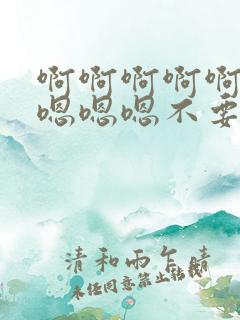 啊啊啊啊啊
嗯嗯嗯不要
清和雨乍晴
未经同意禁止转载